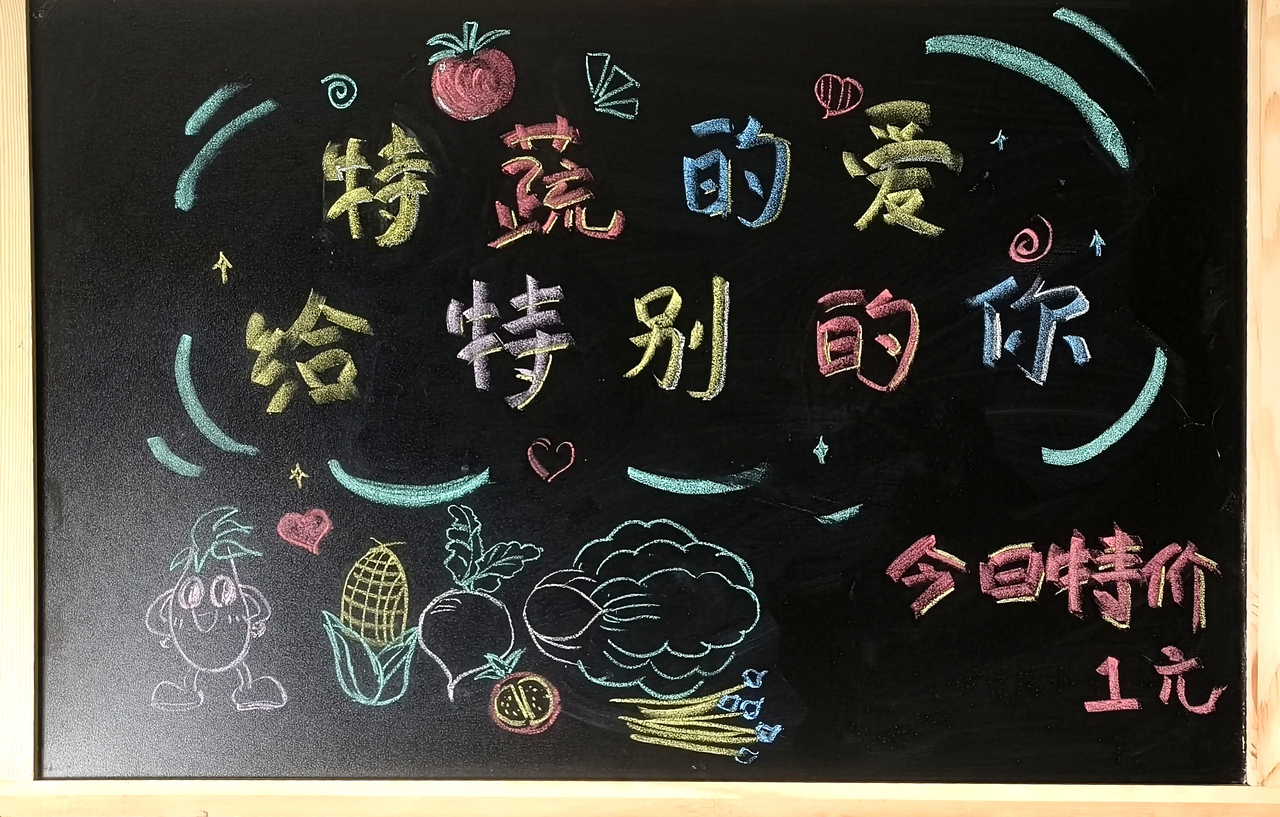 特蔬的爱
给特别的你
今日特价
1元